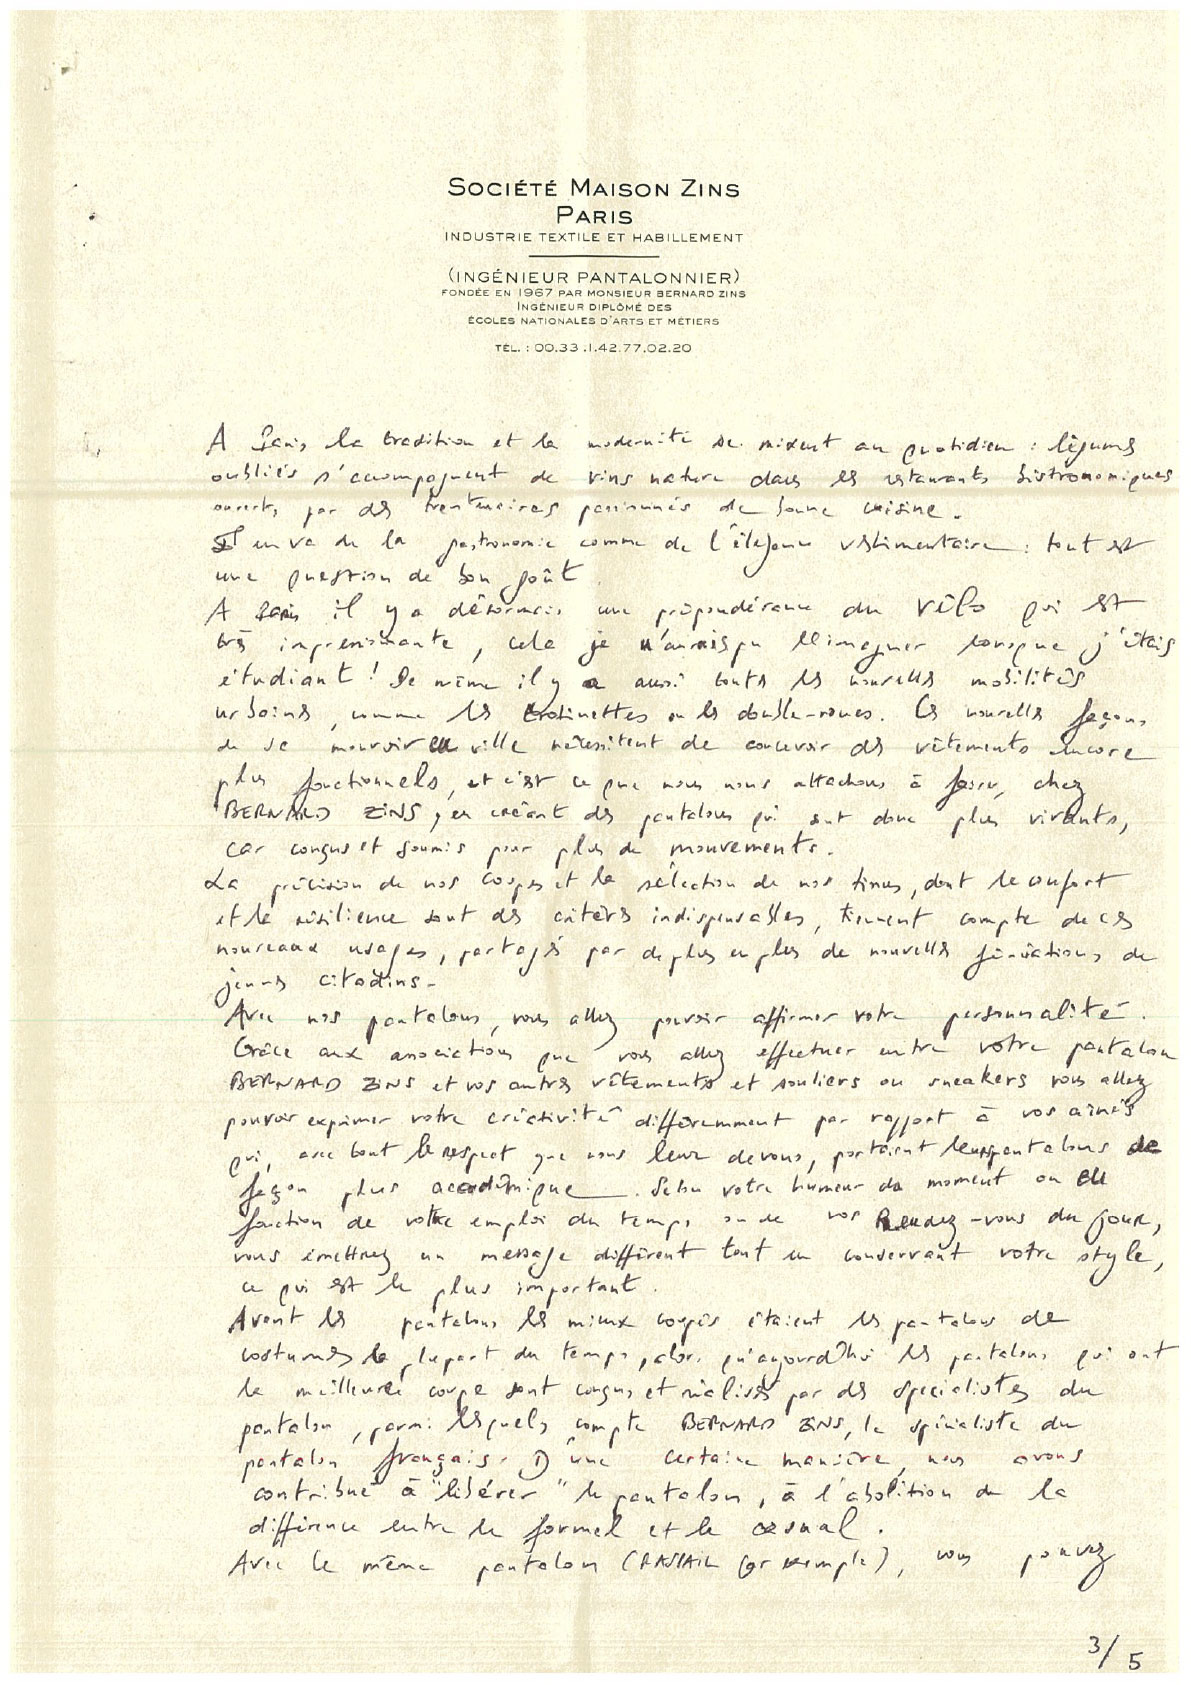 SOCIÉTÉ MAISON ZINS
PARIS
INDUSTRIE TEXTILE ET HABILLEMENT
(INGÉNIEUR PANTALONNIER)
FONDÉE EN 1967 PAR MONSIEUR BERNARD ZINS
INGÉNIEUR DIPLÔMÉ DES
ÉCOLES NATIONALES D'ARTS ET MÉTIERS
TÉL. : 00.33.1.42.77.02.20
A Paris, la tradition et la modernité se mixent au quotidien : légumes
oubliés s'accompagnent de vins nature dans les restaurants bistronomiques
ouverts par des trentenaires passionnés de bonne cuisine.
Il en va de la gastronomie comme de l'élégance vestimentaire : tout est
une question de bon goût.
A Paris il y a désormais une prépondérance du vélo qui est
très impressionnante, cela je n'aurais pu l'imaginer lorsque j'étais
étudiant ! De même il y a aussi toutes les nouvelles mobilités
urbaines, comme les trotinettes ou les double-roues. Ces nouvelles façons
de se mouvoir en ville nécessitent de concevoir des vêtements encore
plus fonctionnels, et c'est ce que nous nous attachons à faire, chez
BERNARD ZINS, en créant des pantalons qui sont donc plus vivants,
car conçus et soumis pour plus de mouvements.
La précision de nos coupes et la sélection de nos tissus, dont le confort
et la résilience sont des critères indispensables, tiennent compte de ces
nouveaux usages, partagés par de plus en plus de nouvelles générations de
jeunes citadins.
Avec nos pantalons, vous allez pouvoir affirmer votre personnalité.
Grâce aux associations que vous allez effectuer entre votre pantalon
BERNARD ZINS et vos autres vêtements et souliers ou sneakers vous allez
pouvoir exprimer votre créativité différemment par rapport à vos aînés
qui, avec tout le respect que nous leur devons, portaient leurs pantalons de
façon plus académique. Selon votre humeur du moment ou en
fonction de votre emploi du temps ou de vos Rendez-vous du jour,
vous émettrez un message différent tout en conservant votre style,
ce qui est le plus important.
Avant les pantalons les mieux coupés étaient les pantalons de
costumes la plupart du temps, alors qu'aujourd'hui les pantalons qui ont
la meilleure coupe sont conçus et réalisés par des spécialistes du
pantalon, parmi lesquels compte BERNARD ZINS, le spécialiste du
pantalon français. D'une certaine manière, nous avons
contribué à "libérer" le pantalon, à l'abolition de la
différence entre le formel et le casual.
Avec le même pantalon (RASPAIL par exemple), vous pouvez
3/5